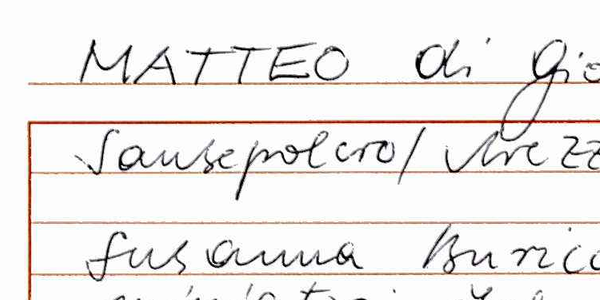 MATTEO di Gio
Sansepolcro/ Arezz
Susanna Buric